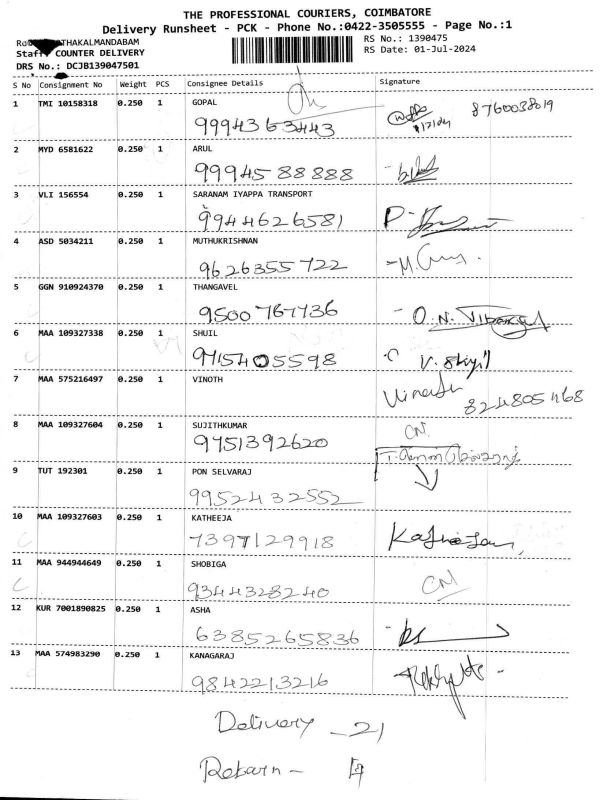 THE PROFESSIONAL COURIERS, COIMBATORE
Delivery Runsheet - PCK - Phone No.:0422-3505555 - Page No.:1
THAKALMANDABAM
RS No.: 1390475
Staff: COUNTER DELIVERY
RS Date: 01-Jul-2024
DRS No.: DCJB139047501
S No Consignment No Weight PCS Consignee Details Signature
1 TMI 10158318 0.250 1 GOPAL
9994363443 8760038019
2 MYD 6581622 0.250 1 ARUL
9994588888
3 VLI 156554 0.250 1 SARANAM IYAPPA TRANSPORT
9944626581
4 ASD 5034211 0.250 1 MUTHUKRISHNAN
9626355722
5 GGN 910924370 0.250 1 THANGAVEL
9500767736
6 MAA 109327338 0.250 1 SHUIL
9715405598
7 MAA 575216497 0.250 1 VINOTH
Vinoth
8 MAA 109327604 0.250 1 SUJITHKUMAR
9751392620 CN
9 TUT 192301 0.250 1 PON SELVARAJ
9952432552
10 MAA 109327603 0.250 1 KATHEEJA
7397129918
11 MAA 944944649 0.250 1 SHOBIGA
9344328240 CN
12 KUR 7001890825 0.250 1 ASHA
6385265836
13 MAA 574983290 0.250 1 KANAGARAJ
9842213216
Delivery - 21
Return -